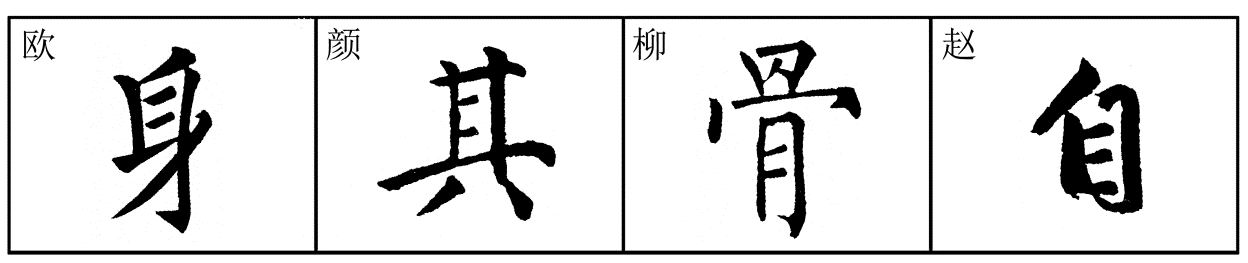 欧 身 颜 其 柳 骨 赵 自